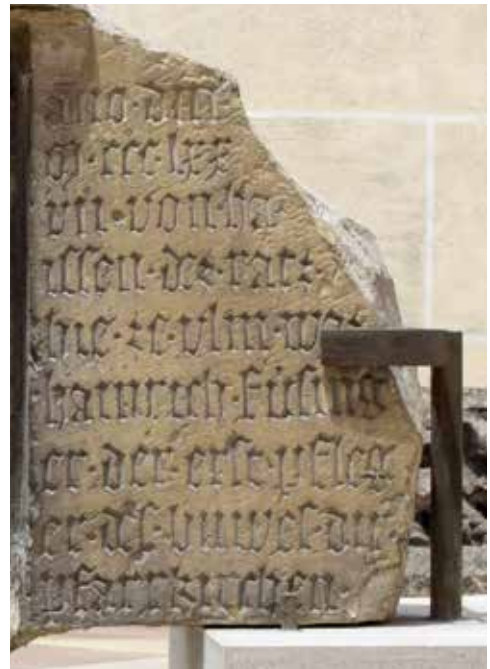 ano · dni
m · ccc · lxx
vii · von · ha
issen · dez · ratz
hie · ze · vlm · was
hainrich · füsing
er · der · erst · pfleg
er · des · buwes · dir
pfarrkirchen ·